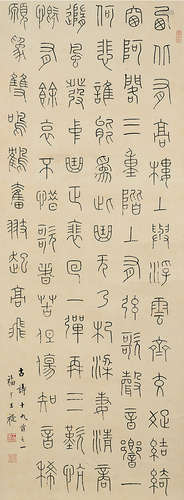 西北有高樓上與浮雲齊交疏結綺
窗阿閣三重階上有弦歌聲音響一
何悲誰能為此曲無乃杞梁妻清商
隨風發中曲正裴回一彈再三歎忼
慨有餘哀不惜歌者苦但傷知音稀
願為雙鳴鶴奮翅起高飛
古詩十九首之一
福厂王禔